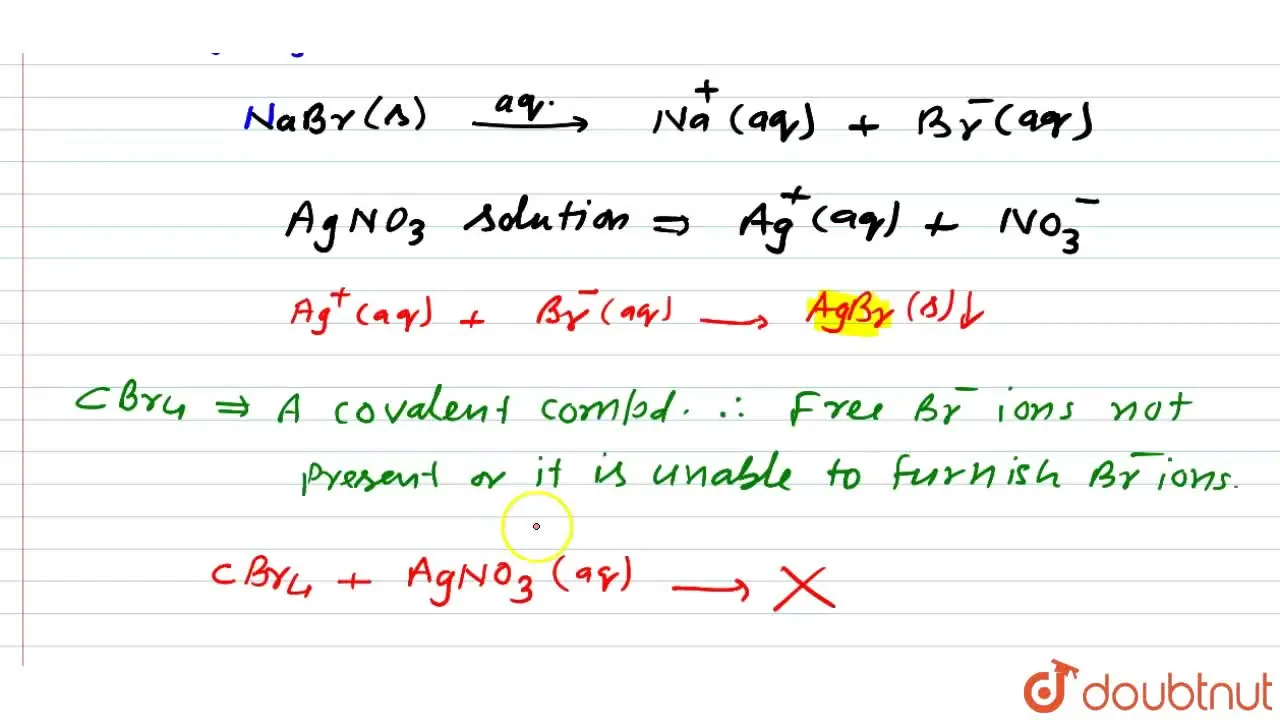 NaBr(s) aq. → Na⁺(aq) + Br⁻(aq)
AgNO₃ solution ⇒ Ag⁺(aq) + NO₃⁻
Ag⁺(aq) + Br⁻(aq) → AgBr(s)↓
CBr₄ ⇒ A covalent compd. ∴ Free Br⁻ ions not
present or it is unable to furnish Br⁻ ions.
CBr₄ + AgNO₃(aq) → X
doubtnut